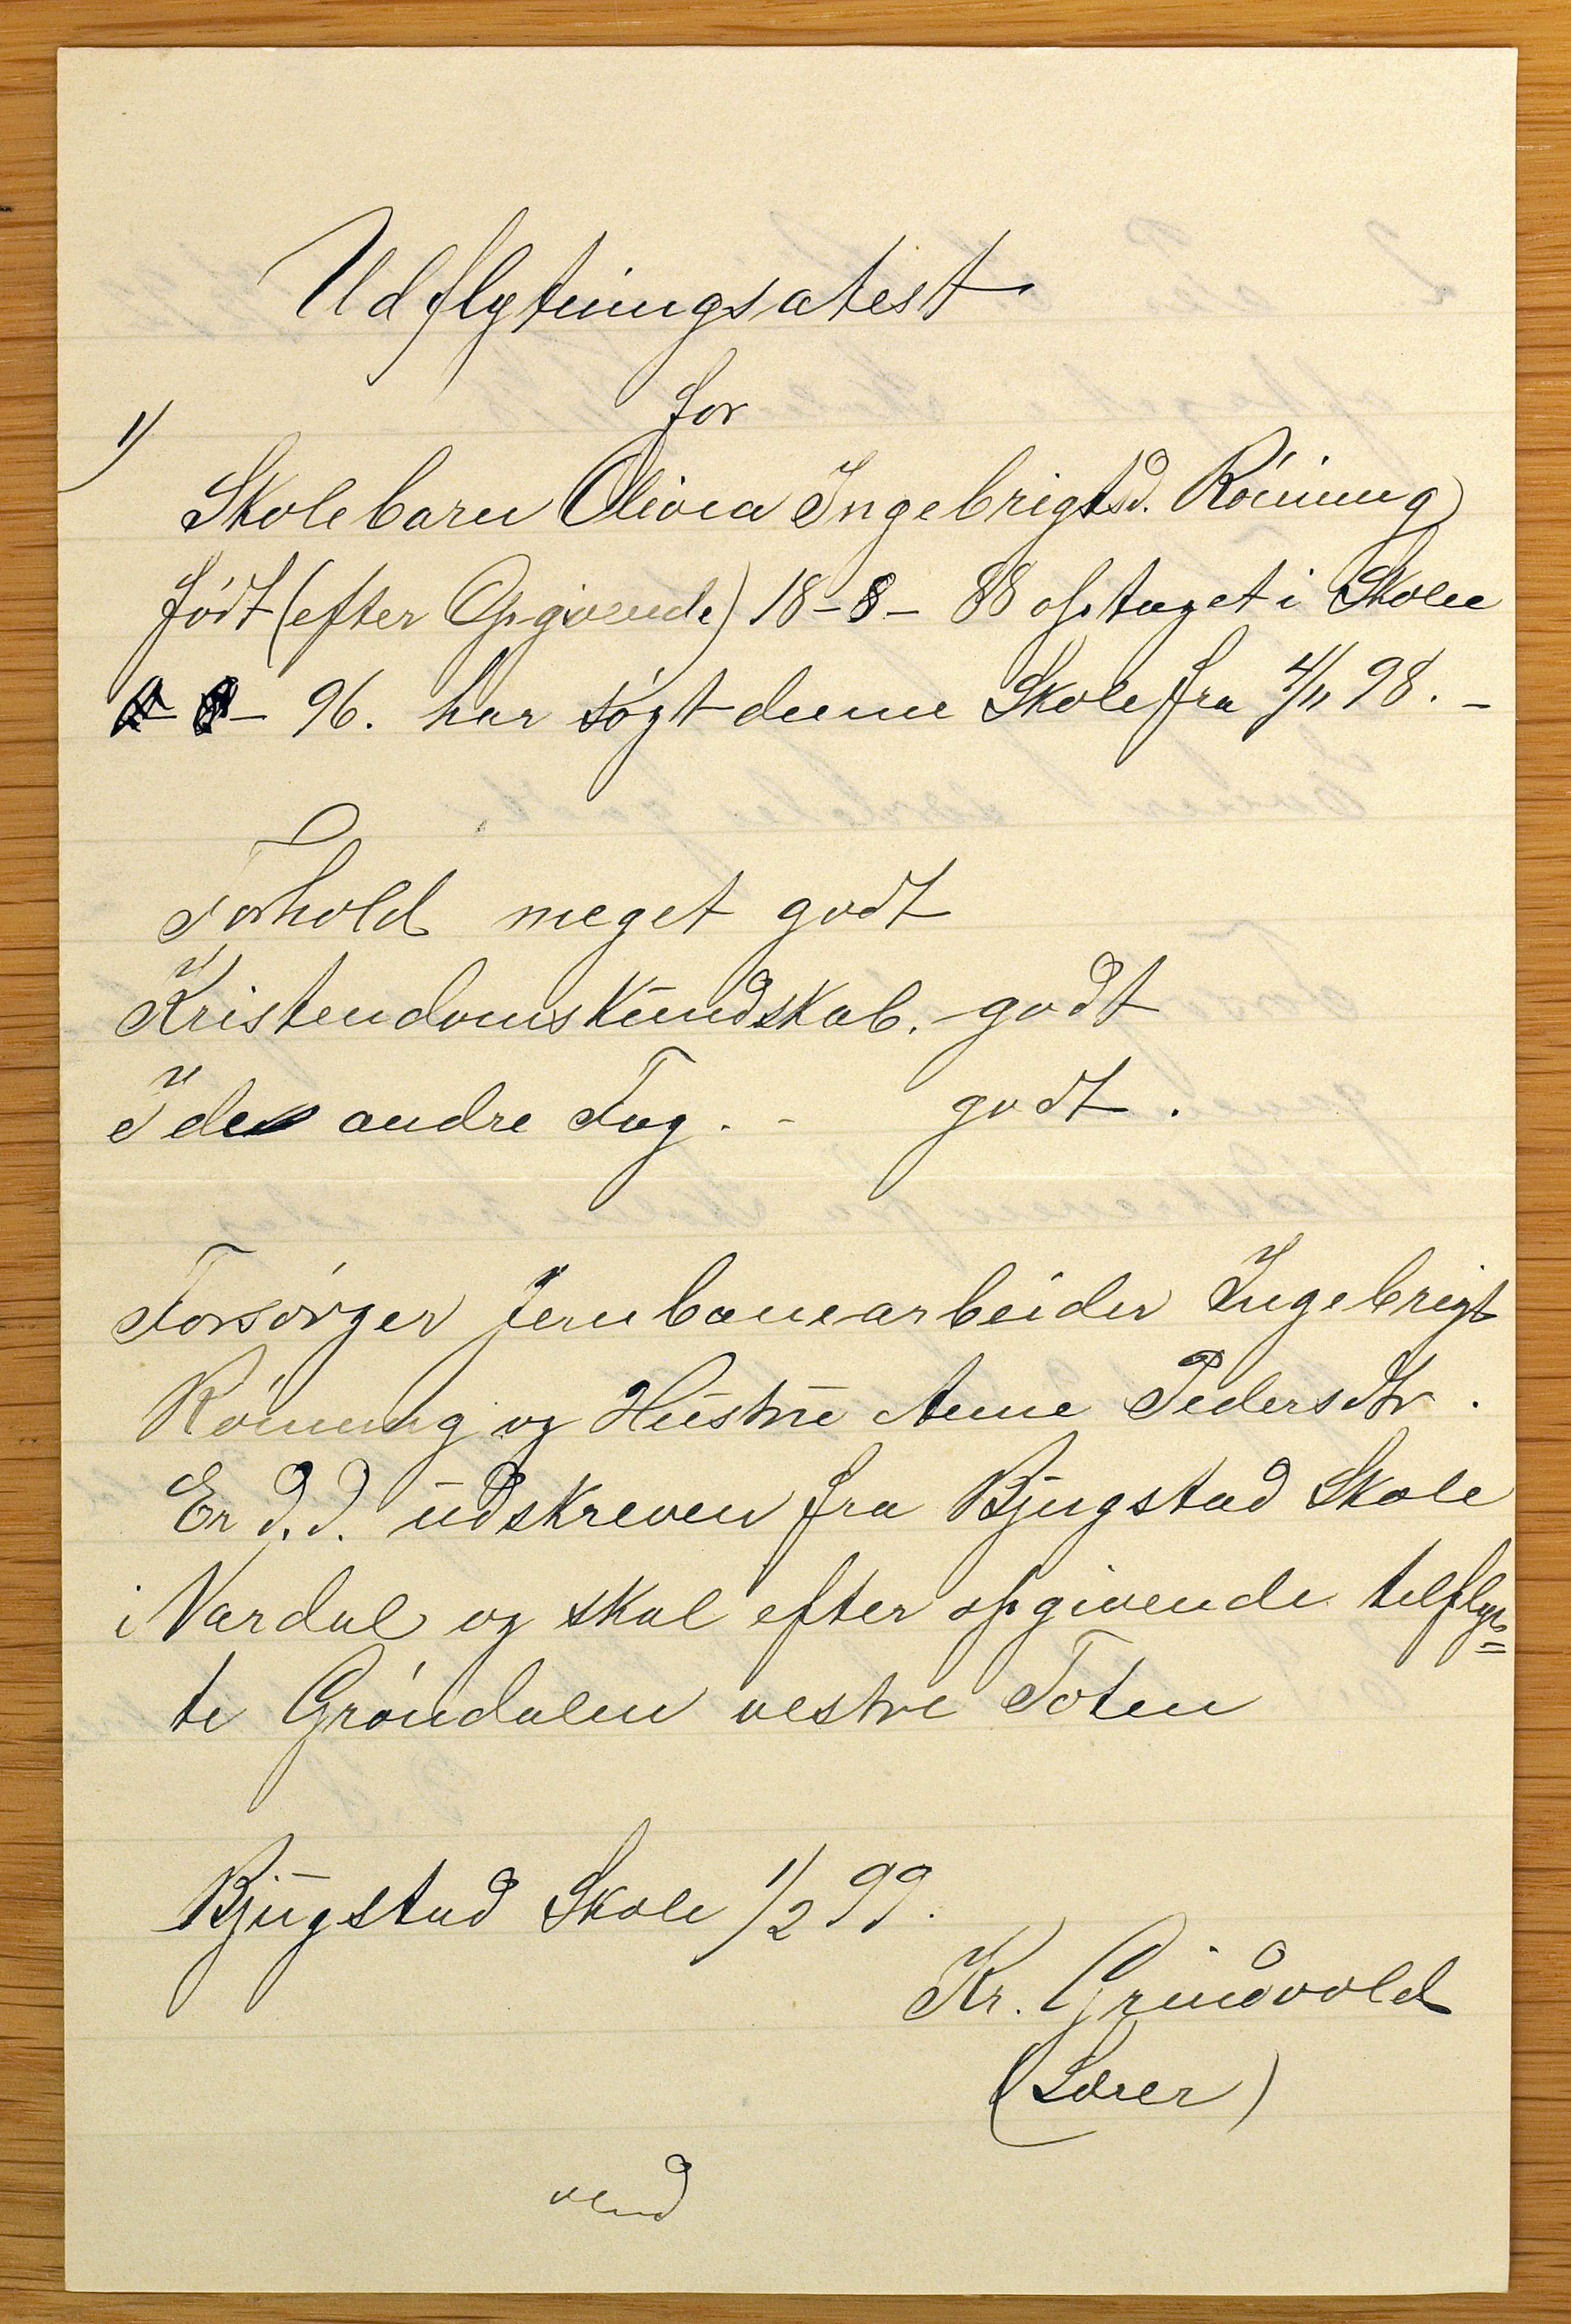 Udflytningsatest
for
1)
Skolebarn Olivia Ingebrigtsd. Rönning
födt (efter Opgivende) 18-8-88 optaget i Skolen
96. har søgt denne Skole fra 4/11 98. -
Forhold meget godt
Kristendomskundskab. - godt
I de andre Fag. - godt.
Forsörger Jernbanearbeider Ingebrigt
Rönning og Hustru Anne Pedersdtr.
Er d.d. udskreven fra Bjugstad Skole
i Vardal og skal efter opgivende tilflyt=
te Gröndalen vestre Toten
Bjugstad Skole 1/2 99.
Kr. Grindvold
(Lærer)
vend